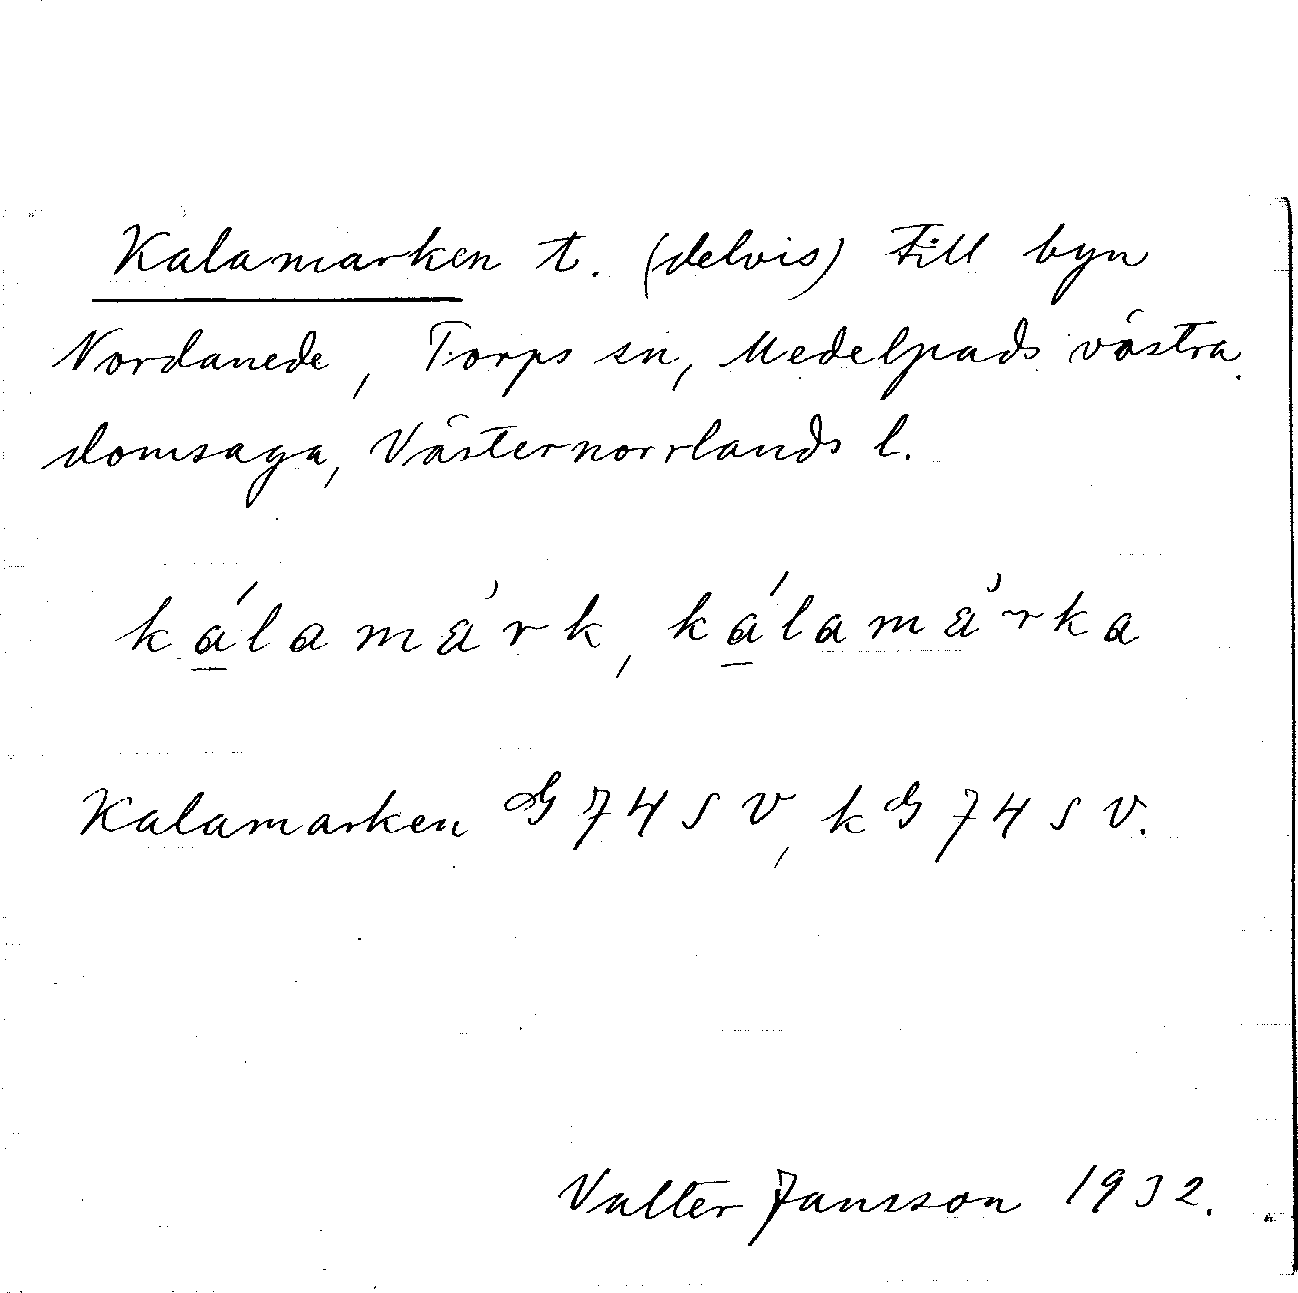 Kalamarken t. (delvis) till byn
Nordanede, Torps sn, Medelpads västra
domsaga, Västernorrlands l.
ká̱lamàrk, ká̱lamàrka
Kalamarken G 74 S V, k G 74 S V.
Valter Jansson 1932.